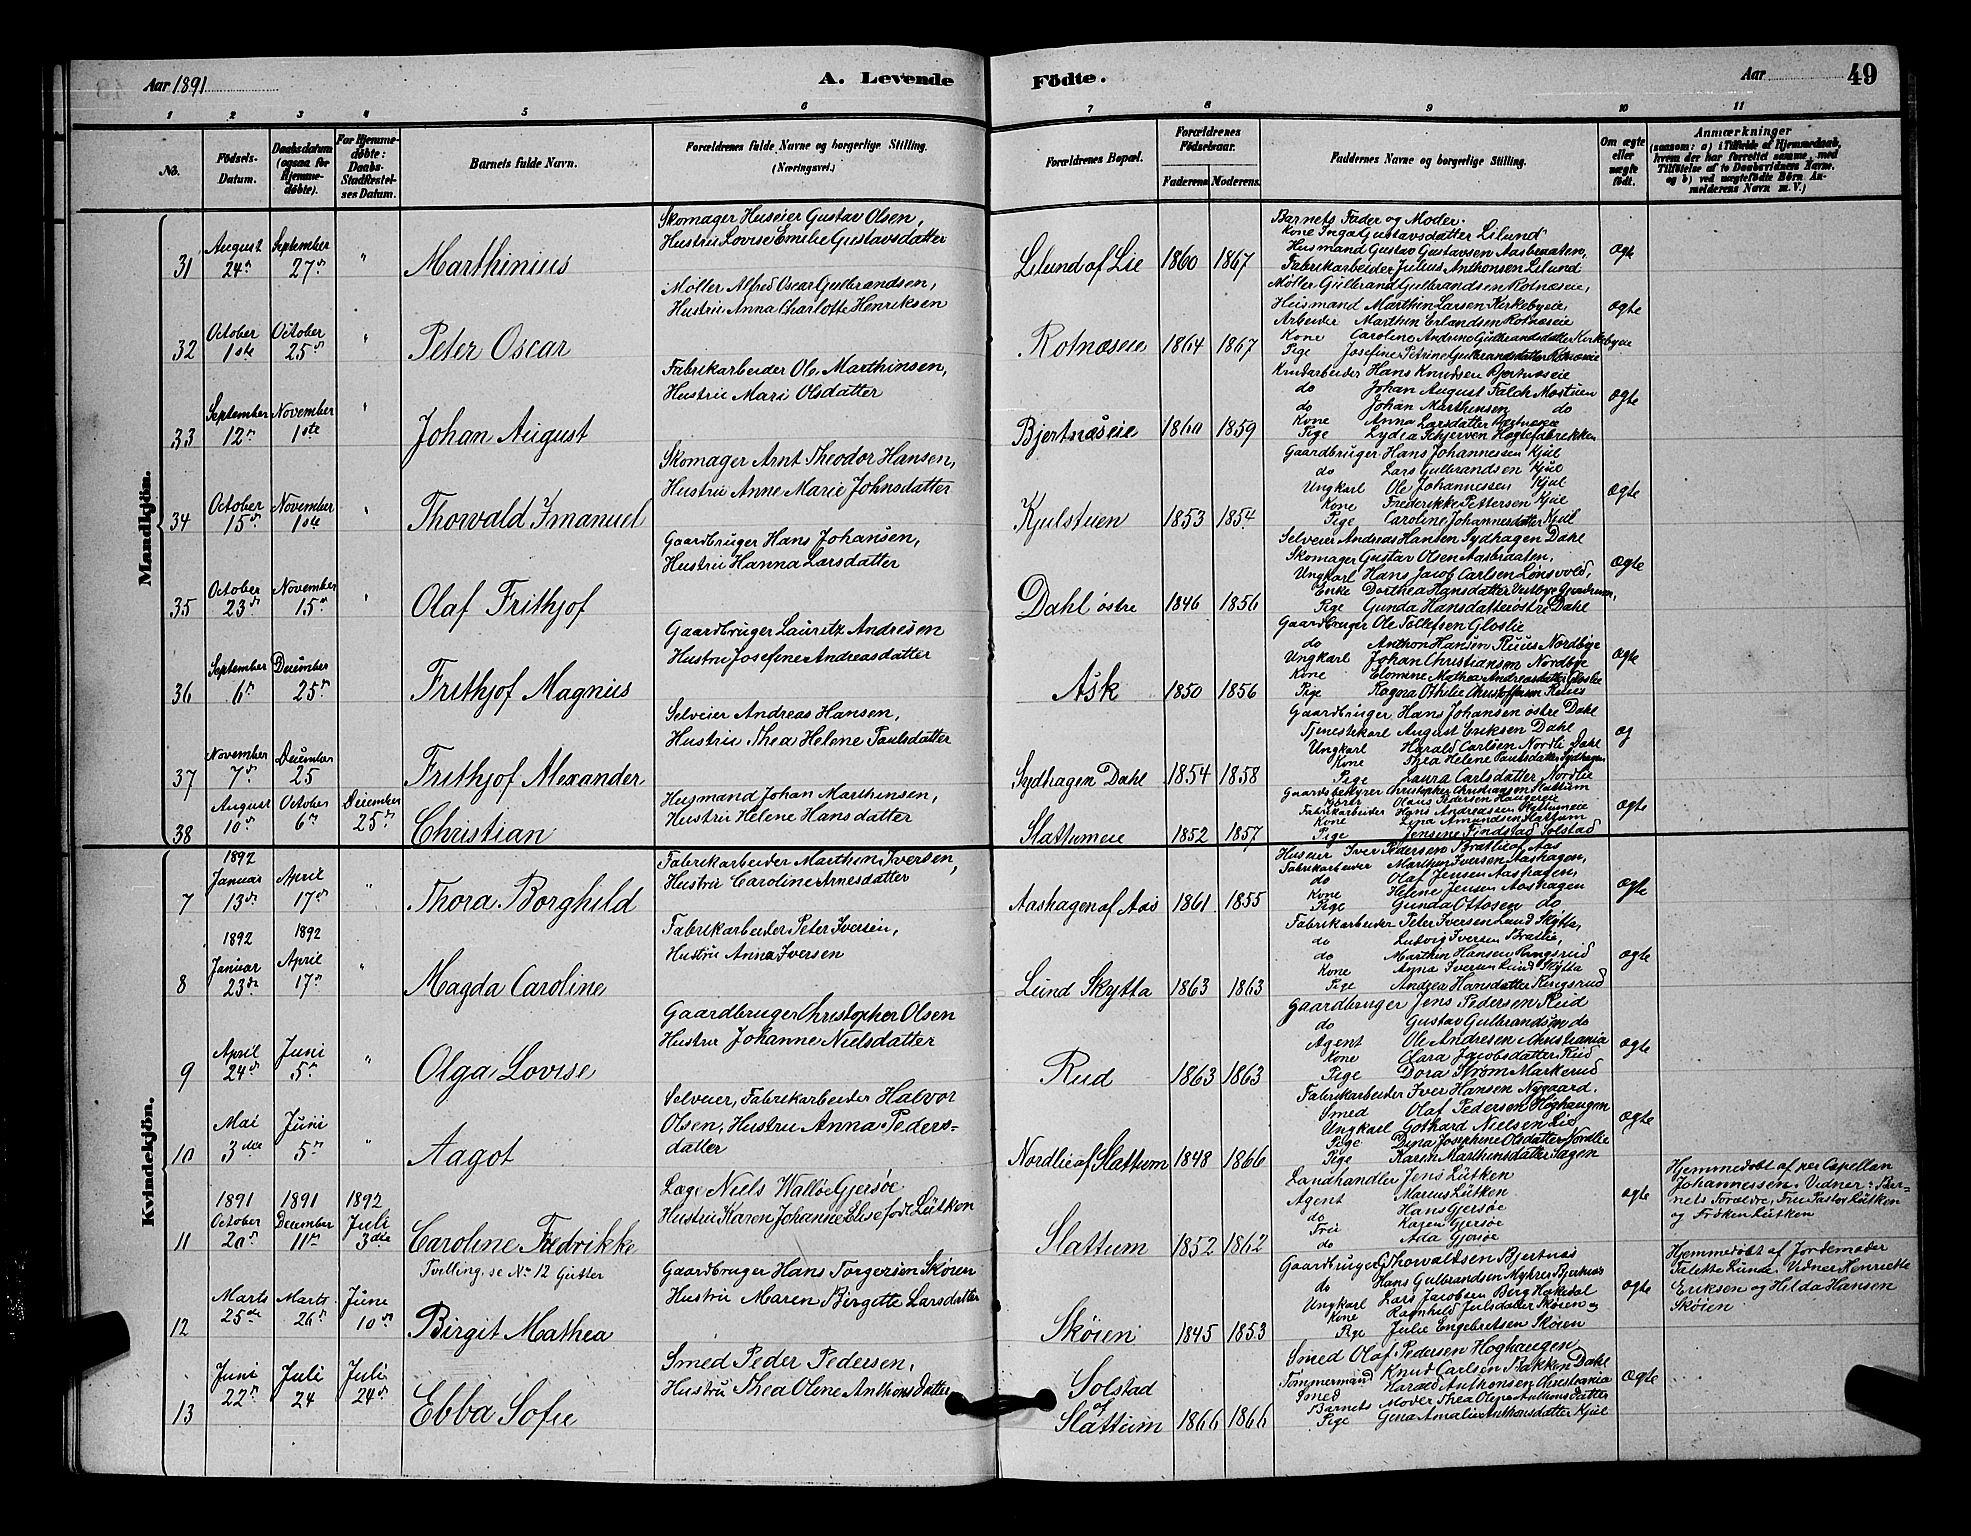 Aar 1891
A. Levende
Födte.
Aar
49
1 2 3 4 5 6 7 8 9 10 11
No.
Födsels-Datum.
Daabsdatum (ogsaa for Hjemme-döbte).
For Hjemme-döbte: Daabs-Stadfæstel-ses Datum.
Barnets fulde Navn.
Forældrenes fulde Navne og borgerlige Stilling. (Næringsvei.)
Forældrenes Bopæl.
Forældrenes Födselsaar.
Faderens Moderens.
Faddernes Navne og borgerlige Stilling.
Om ægte eller uægte födt.
Anmærkninger
(saasom: a) i Tilfælde af Hjemmedaab, hvem der har forrettet samme, med Tilföielse af to Daabsvidners Navne. og b) ved uægtefödte Börn Anmelderens Navn m. V.)
Mandkjön.
31
August 24de
September 27de
"
Marthinius
Skomager Huseier Gustav Olsen,
Hustru Lovise Emilie Gustavsdatter
Lilund af Lie
1860
1867
Barnets Fader og Moder.
Kone Inga Gustavsdatter Lilund
Husmand Gustav Gustavsen Aasbraaten,
Fabrikarbeider Julius Anthonsen Lilund
Ægte
32
October 1ste
October 25de
"
Peter Oscar
Møller Alfred Oscar Gulbrandsen,
Hustru Anna Charlotte Henriksen
Rotnæseie
1864
1867
Møller Gulbrand Gulbrandsen Rotnæseie,
Husmand Marthin Larsen Kirkebyeie,
Arbeider Marthin Erlandsen Rotnæseie
Kone Caroline Andrine Gudbrandsdatter Kirkebyeie
Pige Josefine Petrine Gulbrandsdatter Rotnæseie
ægte
33
September 12te
November 1ste
"
Johan August
Fabrikarbeider Ole Marthinsen,
Hustru Mari Olsdatter
Bjertnæseie
1860
1859
Krudarbeider Hans Knudsen Bjertnæseie
do Johan August Falch Mostuen
do Johan Marthinsen do
Kone Anna Larsdatter Bjertnæseie
Pige Lydea Schjerven
ægte
34
October 15de
November 1ste
"
Thorvald Imanuel
Skomager Arnt Theodor Hansen,
Hustru Anne Marie Johnsdatter
Kjulstuen
1853
1854
Gaardbruger Hans Johannessen Kjul
do Lars Gulbrandsen Kjul
Ungkarl Ole Johannessen Kjul
Kone Frederikke Pettersen Kjul
Pige Caroline Johannesdatter Kjul
ægte
35
October 23de
November 15de
"
Olaf Frithjof
Gaardbruger Hans Johansen,
Hustru Hanna Larsdatter
Dahl østre
1846
1856
Selveier Andreas Hansen Sydhagen Dahl
Skomager Gustav Olsen Aasbraaten.
Ungkarl Hans Jacob Carlsen Lønsvold,
Enke Dorthea Hansdatter Vestbye Gjerdrum,
Pige Gunda Hansdatter østre Dahl
Ægte
36
September 6te
December 25de
Frithjof Magnus
Gaardbruger Lauritz Andresen
Hustru Josefine Andreasdatter
Ask
1850
1856
Gaardbruger Ole Tollefsen Gloslie
do Anthon Hansen Ruus Nordbye
Ungkarl Johan Christiansen Nordbye
Kone Elomine Mathea Andreasdatter Gloslie
Pige Ragna Othilie Christoffersen Ruus
ægte
37
November 7de
December 25
Frithjof Alexander
Selveier Andreas Hansen,
Hustru Thea Helene Paulsdatter
Sydhagen Dahl
1854
1858
Gaardbruger Hans Johansen østre Dahl
Tjenestekarl August Eriksen Dahl
Ungkarl Harald Carlsen Nordli Dahl
Kone Thea Helene Paulsdatter Sydhagen
Pige Laura Carlsdatter Nordlie
æg
38
August 10de
October 6te
December 25de
Christian
Husmand Johan Marthinsen,
Hustru Helene Hansdatter
Slattumeie
1852
1857
Gaardsbestyrer Christopher Christiansen Slattum
Olaus Pedersen Haugereie
Fabrikarbeider Hans Andreassen Slattumeie
Kone Lina Amundsen Slattum
Pige Jensine Findstad Solstad
ægte
Kvindekjön.
7
1892 Januar 13de
April 17de
"
Thora Borghild
Fabrikarbeider Marthin Iversen,
Hustru Caroline Arnesdatter
Aashagen af Aas
1861
1855
Huseier Iver Pedersen Bratlie af Aas
Fabrikarbeider Marthin Iversen Aashagen,
do Olaf Jensen Aashagen,
Kone Helene Jensen Aashagen
Pige Gunda Ottosen do
Ægte
8
1892 Januar 23de
1892 April 17de
"
Magda Caroline
Fabrikarbeider Peter Iversen,
Hustru Anna Iversen
Lund Skytta
1863
1863
Fabrikarbeider Peter Iversen Lund Skytta,
do Ludvig Iversen Bratlie,
do Marthin Hansen Ringsrud
Kone Anna Iversen Lund Skytta
Pige Andrea Hansdatter Ringsrud
Ægte
9
April 24de
Juni 5te
"
Olga Lovise
Gaardbruger Christopher Olsen
Hustru Johanne Nielsdatter
Rud
1863
1863
Gaardbruger Jens Pedersen Rud
do Gustav Gulbrandsen do
Agent Ole Andresen Christiania
Kone Clara Jacobsdatter Rud
Pige Dora Strøm Markerud
ægte
10
Mai 3die
Juni 5te
"
Aagot
Selveier, Fabrikarbeider Halvor
Olsen, Hustru Anna Peders-
datter
Nordlie af Slattum
1848
1866
Fabrikarbeider Iver Hansen Nygaard.
Smed Olaf Pedersen Høghaugen
Ungkarl Gothard Nielsen Lie
Pige Dina Josephine Olsdatter Nordlie
Pige Karen Marthinsdatter Sagen
Ægte
11
1891 October 20de
1891 December 11te
1892 Juli 3die
Caroline Fredrikke
Læge Niels Walløe Gjersøe
Hustru Karen Johanne Elise født Lütken
Slattum
1852
1862
Landhandler Jens Lütken
Agent Marius Lütken
do Hans Gjersøe
Fru Karen Gjersøe
do Ada Gjersøe
ægte
Hjemmedøbt af per Capellan
Johannessen. Vidner: Bar-
nets Forældre, Fru Pastor Lütken
og Frøken Lütken
12
Marts 25de
Marts 26de
June 10de
Tvilling. se No 12 Gutter
Birgit Mathea
Gaardbruger Hans Torgersen Skøien
Hustru Maren Birgitte Larsdatter
Skøien
1845
1853
Gaardbruger G Thorvaldsen Bjertnæs
do Hans Gulbrandsen Myhrer Bjertnæs
Ungkarl Lars Jacobsen Berg Hakedal
Kone Ragnhild Julsdatter Skøien og
Pige Julie Engebretsen Skøien
ægte
Hjemmedøbt af Jordemoder
Falette Lunde. Vidner Henriette
Eriksen og Hilda Hansen
Skøien
13
Juni 22de
Juli 24
Juli 24de
Ebba Sofie
Smed Peder Pedersen,
Hustru Thea Olene Anthonsdatter
Solstad af Slattum
1866
1866
Smed Olaf Pedersen Høghaugen
Tømmermand Knud Carlsen Bakken Dahl
Smed Harald Anthonsen Christiania
Barnets Moder Thea Olene Anthonsdatter
Pige Gina Amalie Anthonsdatter Kjul
Ægte